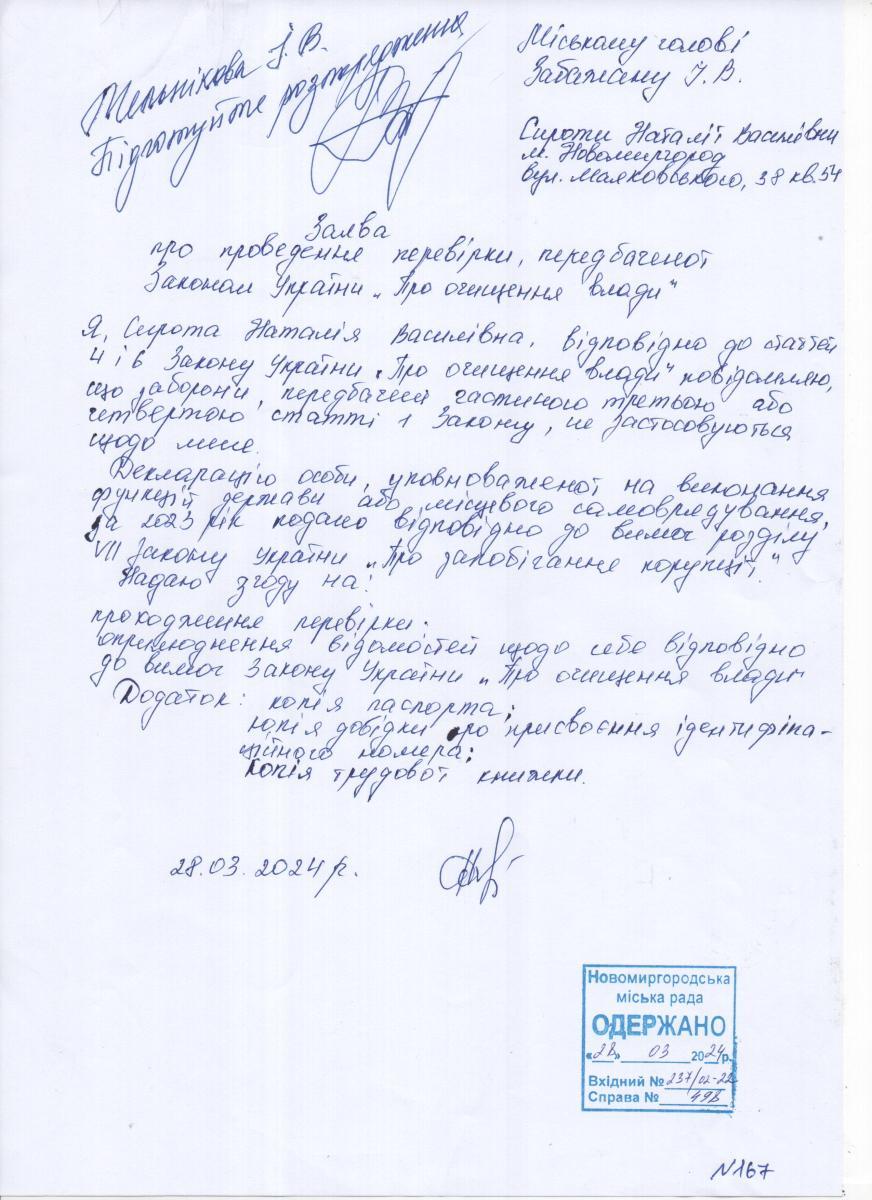 Мельнікова І. В.
Підготуйте розпорядження
Міському голові
Забажану І. В.
Сироти Наталії Василівни
м. Новомиргород
вул. Маяковського, 38 кв. 54
Заява
про проведення перевірки, передбаченої
Законом України „Про очищення влади"
Я, Сирота Наталія Василівна, відповідно до статтей
4 і 6 Закону України „Про очищення влади" повідомляю,
що заборони, передбачені частиною третьою або
четвертою статті 1 Закону, не застосовуються
щодо мене.
Декларацію особи, уповноваженої на виконання
функцій держави або місцевого самоврядування,
за 2023 рік подано відповідно до вимог розділу
VII Закону України „Про запобігання корупції."
Надаю згоду на:
проходження перевірки;
оприлюднення відомостей щодо себе відповідно
до вимог Закону України „Про очищення влади"
Додаток: копія паспорта;
копія довідки про присвоєння ідентифіка-
ційного номера;
копія трудової книжки.
28.03.2024 р.
Новомиргородська
міська рада
ОДЕРЖАНО
«28» 03 2024 р.
Вхідний № 237/02-22
Справа № 498
N 167